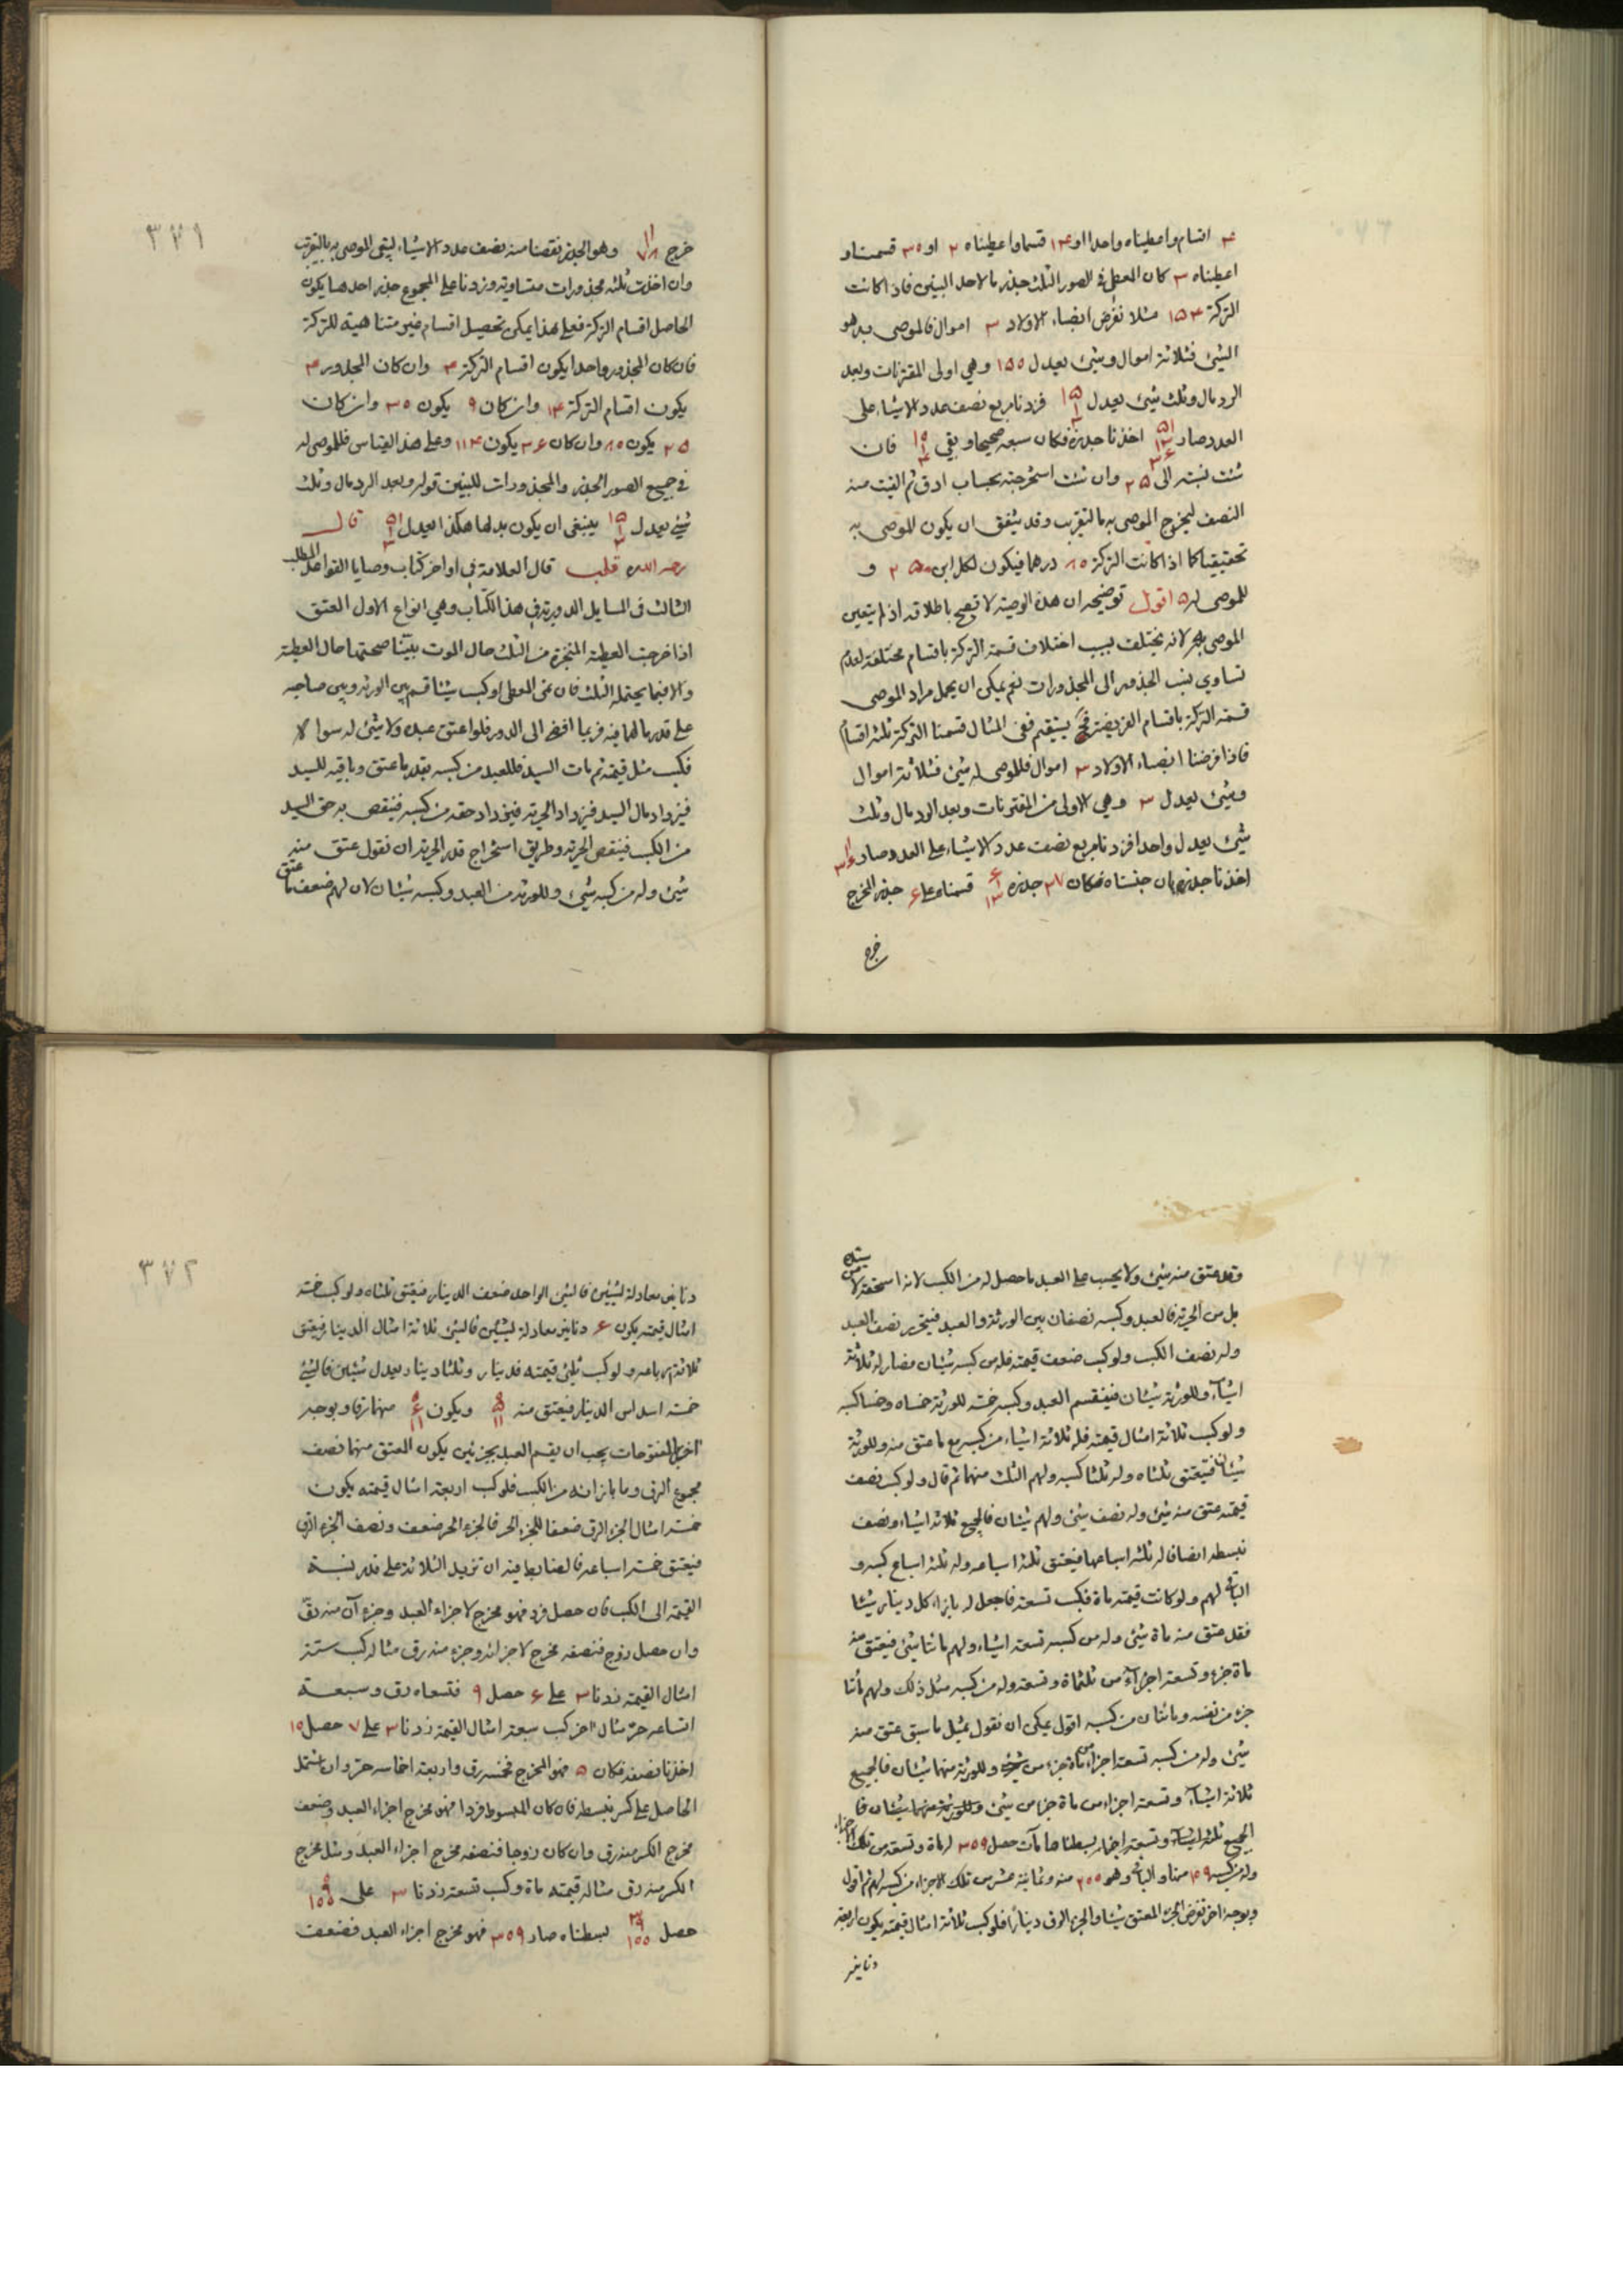 ۴ اقسام واعطیناه واحدا او ۱۴ قسما واعطیناه ۲ او ۳۰ قسمناو
اعطیناه ۳ کان المعطی فی الصور الثلث جذر مالاحد البنین فاذا کانت
الترکة ۱۵۴ مثلا نفرض انصباء الاولاد ۳ اموال فالموصی به هو
الشیئ فثلاثة اموال وشیئ یعدل ۱۵۵ وهی اولی المقترنات وبعد
الرد مال وثلث شیئ یعدل فزدنا مربع نصف عدد الاشیاء علی
العدد صار اخذنا جذره فکان سبعة صحیحا وبقی فان
شئت نسبته الی ۲۵ وان شئت استخرجته بحساب ادق ثم القیت منه
النصف لیخرج الموصی به بالتقریب وقد یتفق ان یکون للموصی به
تحقیقیا کما اذا کانت الترکة ۸۰ درهما فیکون لکل ابن ۲۵ و
للموصی له ۵ اقول توضیحه ان هذه الوصیة لا تصح باطلاقه اذ لم یتعین
الموصی به لانه یختلف بسبب اختلاف قسمة الترکة باقسام مختلفة لعدم
تساوی نسب الجذور الی المجذورات نعم یمکن ان یحمل مراد الموصی
قسمة الترکة باقسام الفریضة یستقیم ففی المثال قسمنا الترکة ثلثة اقسام
فاذا فرضنا انصباء الاولاد ۳ اموال فللموصی له شیئ فثلاثة اموال
وشیئ یعدل ۳ وهی الاولی من المقترنات وبعد الرد مال وثلث
شیئ یعدل واحدا فزدنا مربع نصف عدد الاشیاء علی العدد صار
اخذنا جذره بان جنسناه فکان ۳۷ جذره قسمناه علی ۶ جذر المخرج
خرج
۳۷۱
خرج وهو الجذر نقصنا منه نصف عدد الاشیاء لیبقی الموصی به بالتقریب
وان اخذت ثلثة مجذورات متساویة وزدنا علی المجموع جذر احدها یکون
الحاصل اقسام الترکة فعلی هذا یمکن تحصیل اقسام غیر متناهیة للترکة
فان کان المجذور واحدا یکون اقسام الترکة ۴ وان کان المجذور ۴
یکون اقسام الترکة ۱۴ وان کان ۹ یکون ۳۰ وان کان
۲۵ یکون ۸۰ وان کان ۳۶ یکون ۱۱۴ وعلی هذا القیاس فللموصی له
فی جمیع الصور الجذر والمجذورات للبنین قوله وبعد الرد مال وثلث
شیئ یعدل ینبغی ان یکون بدلها هکذا یعدل قال
رحمه الله قلب قال العلامة فی اواخر کتاب وصایا القواعد المطلب
الثالث فی المسایل الدوریة فی هذا الکتاب وهی انواع الاول العتق
اذا خرجت العطیة المنجزة من الثلث حال الموت بینا صحتها حال العطیة
والا فیما یحتمله الثلث فان نمی المعطی او کسب شیئا قسم بین الورثة وبین صاحبه
علی قدر مالهما فیه فربما افضی الی الدور فلو اعتق عبده ولا شیئ له سواه
فکسب مثل قیمته ثم مات السید فللعبد من کسبه بقدر ما عتق وباقیه للسید
فیزداد مال السید فیزداد الحریة فیزداد حقه من کسبه فینقص به حق السید
من الکسب فینقص الحریة وطریق استخراج قدر الحریة ان نقول عتق منه
شیئ وله من کسبه شیئ وللورثة من العبد وکسبه شیئان لان لهم ضعف ما عتق
وقد عتق منه شیئ ولا یحسب علی العبد ما حصل له من الکسب لانه استحقه لا من سیده
بل من الحریة فالعبد وکسبه نصفان بین الورثة والعبد فیتحرر نصف العبد
وله نصف الکسب ولو کسب ضعف قیمته فله من کسبه شیئان فصار له ثلاثة
اشیاء وللورثة شیئان فیقسم العبد وکسبه خمسة للورثة خمساه وخمسا کسبه
ولو کسب ثلاثة امثال قیمته فله ثلاثة اشیاء من کسبه مع ما عتق منه وللورثة
شیئان فیعتق ثلثاه وله ثلثا کسبه ولهم الثلث منهما ثم قال ولو کسب نصف
قیمته عتق منه شیئ وله نصف شیئ ولهم شیئان فالجمیع ثلاثة اشیاء ونصف
نبسطه انصافا له ثلثة اسباعها فیعتق ثلثة اسباعه وله ثلثة اسباع کسبه و
الباقی لهم ولو کانت قیمته مأة فکسب تسعة فاجعل له بازاء کل دینار شیئا
فقد عتق منه مأة شیئ وله من کسبه تسعة اشیاء ولهم مائتا شیئ فیعتق منه
مأة جزء وتسعة اجزاء من ثلثمأة وتسعة وله من کسبه مثل ذلک ولهم مأتا
جزء من نفسه ومائتان من کسبه اقول یمکن ان نقول بمثل ما سبق عتق منه
شیئ وله من کسبه تسعة اجزاء من مأة جزء من شیئ وللورثة منهما شیئان فالجمیع
ثلاثة اشیاء وتسعة اجزاء من مأة جزء من شیئ وللورثة منهما شیئان فا
لجمیع ثلثة اشیاء وتسعة اجزاء بسطناها مآت حصل ۳۰۹ له مأة وتسعة من تلک الاجزاء
وله من کسبه ۱۰۹ منها والباقی وهو ۲۰۰ منه وثمانیة عشر من تلک الاجزاء من کسبه لهم ثم اقول
وبوجه اخر نفرض الجزء المعتق شیئا والجزء الرق دینارا فلو کسب ثلاثة امثال قیمته یکون اربعة
دنانیر
۳۷۲
دنانیر معادلة لشیئین فالشیئ الواحد ضعف الدینار فیعتق ثلثاه ولو کسب خمسة
امثال قیمته یکون ۶ دنانیر معادلة لشیئین فالشیئ ثلاثة امثال الدینار فیعتق
ثلاثة ارباعه ولو کسب ثلثی قیمته فدینار وثلثا دینار یعدل شیئین فالشیئ
خمسة اسداس الدینار فیعتق منه ۵/۱۱ ویکون ۶/۱۱ منهما رقا وبوجه
اخر بالمفتوحات یجب ان یقسم العبد بجزئین یکون العتق منهما نصف
مجموع الرق وما بازائه من الکسب فلو کسب اربعة امثال قیمته یکون
خمسة امثال الجزء الرق ضعفا للجزء الحر فالجزء الحر ضعف ونصف الجزء الرق
فیعتق خمسة اسباعه فالضابط فیه ان تزید الثلاثة علی قدر نسبة
القیمة الی الکسب فان حصل فرد فهو مخرج لاجزاء العبد وجزءآن منه رق
وان حصل زوج فنصفه مخرج لاجزائه وجزء منه رق مثاله کسب ستة
امثال القیمة زدنا ۳ علی ۶ حصل ۹ فتسعاه رق وسبعة
اتساعه حر مثال اخر کسب سبعة امثال القیمة زدنا ۳ علی ۷ حصل ۱۰
اخذنا نصفه فکان ۵ فهو المخرج فخمسه رق واربعة اخماسه حر وان اشتمل
الحاصل علی کسر نبسطه فان کان المبسوط فردا فهو مخرج اجزاء العبد وضعف
مخرج الکسر منه رق وان کان زوجا فنصفه مخرج اجزاء العبد ومثل مخرج
الکسر منه رق مثاله قیمته مأة وکسب تسعة زدنا ۳ علی ۹/۱۰۰
حصل ۳ ۹/۱۰۰ بسطناه صار ۳۰۹ فهو مخرج اجزاء العبد فضعف